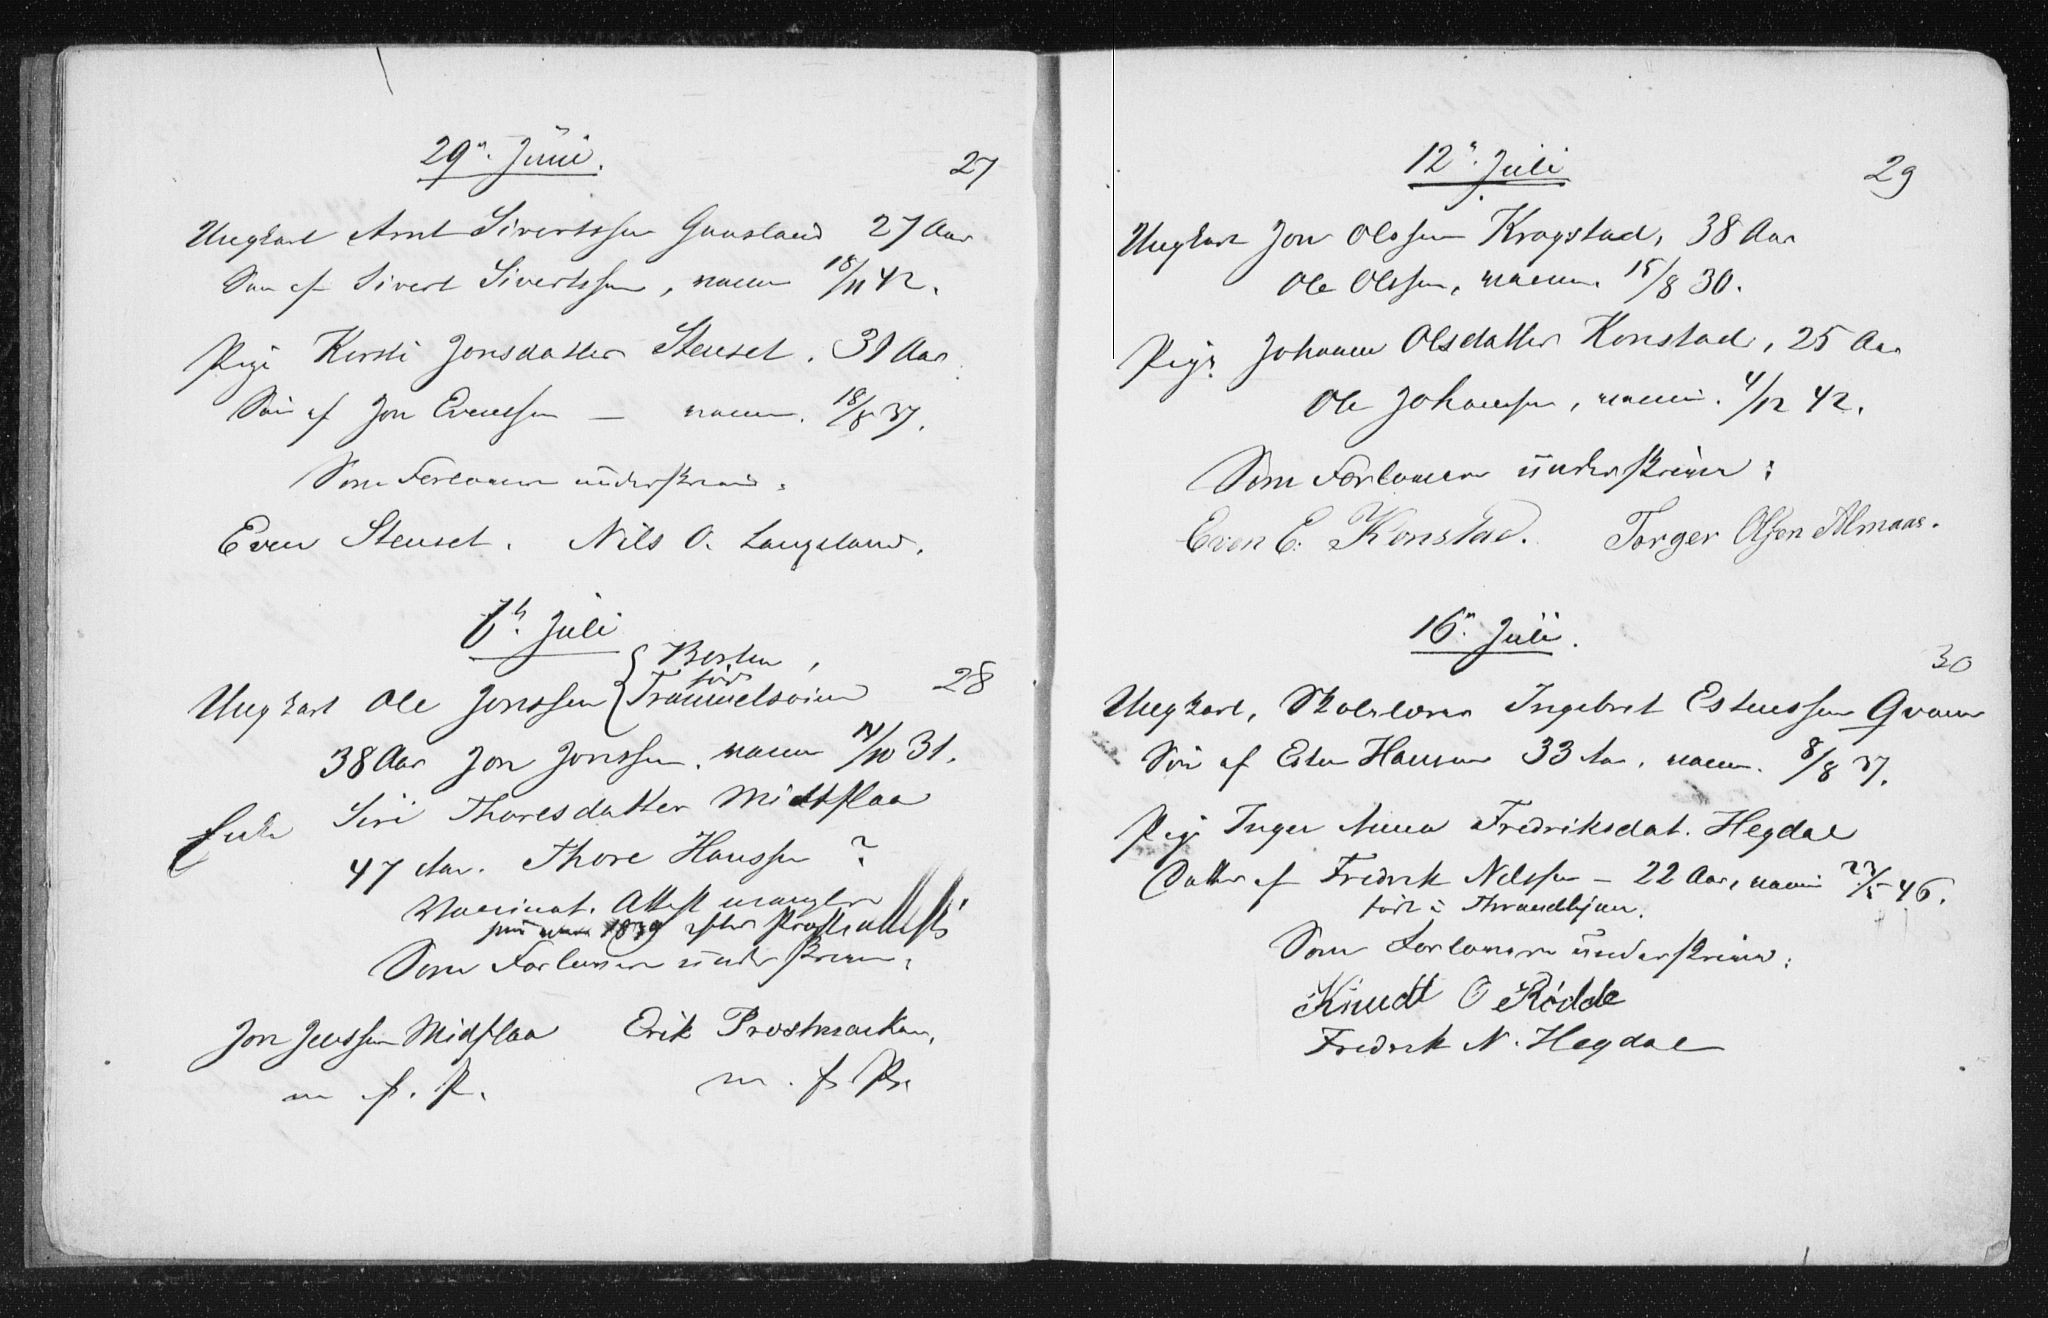 29n. Juni.
27
Ungkarl Arnt Sivertssen Gaasland 27 Aar
Søn af Sivert Sivertssen, vaccn 18/11 42.
Pige Kirsti Jonsdatter Stenset. 31 Aar.
Søn af Jon Evenssen — vaccn. 18/8 37.
Som Forlovere underskrive:
Even Stenset. Nils O. Langeland.
Juli
Borten,
født
28
Ungkarl Ole Jonssen
38 Aar Jon Jonssen. vaccn 14/10 31.
Enke Siri Thoresdatter Midtflaa
47 Aar. Thore Hanssen ?
Vaccinat. Attest mangler
1839 efter
Som Forlovere underskrive:
Jon Jenssen Midflaa Erik Prestmarken,
m. f. P. m. f. P.
12n. Juli
29
Ungkarl Jon Olssen Kragstad, 38 Aar
Ole Olssen, vaccn. 15/8 30.
Pige Johanna Olsdatter Konstad, 25 Aar
Ole Johanssen, vaccn. 4/12 42.
Som Forlovere underskrive:
Even E. Konstad. Torger Olsen Almaas.
16n. Juli.
30
Ungkarl, Skolelærer Ingebrit Estenssen Qvam
Søn af Esten Hansen 33 Aar, vaccn. 8/8 37.
Pige Inger Anna Fredriksdat. Hegdal
Datter af Fredrik Nilssen — 22 Aar, vaccn 23/5 46.
født i Throndhjem.
Som Forlovere underskrive:
Knudt O Rødde
Fredrik N. Hegdal